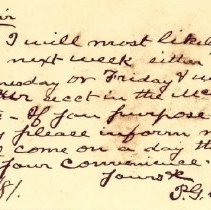 ir
I will most likel
next week either
nesday or Friday & w
our acct in the
If you purpose
please inform m
come on a day th
your convenience
Yours &
81. P.G.